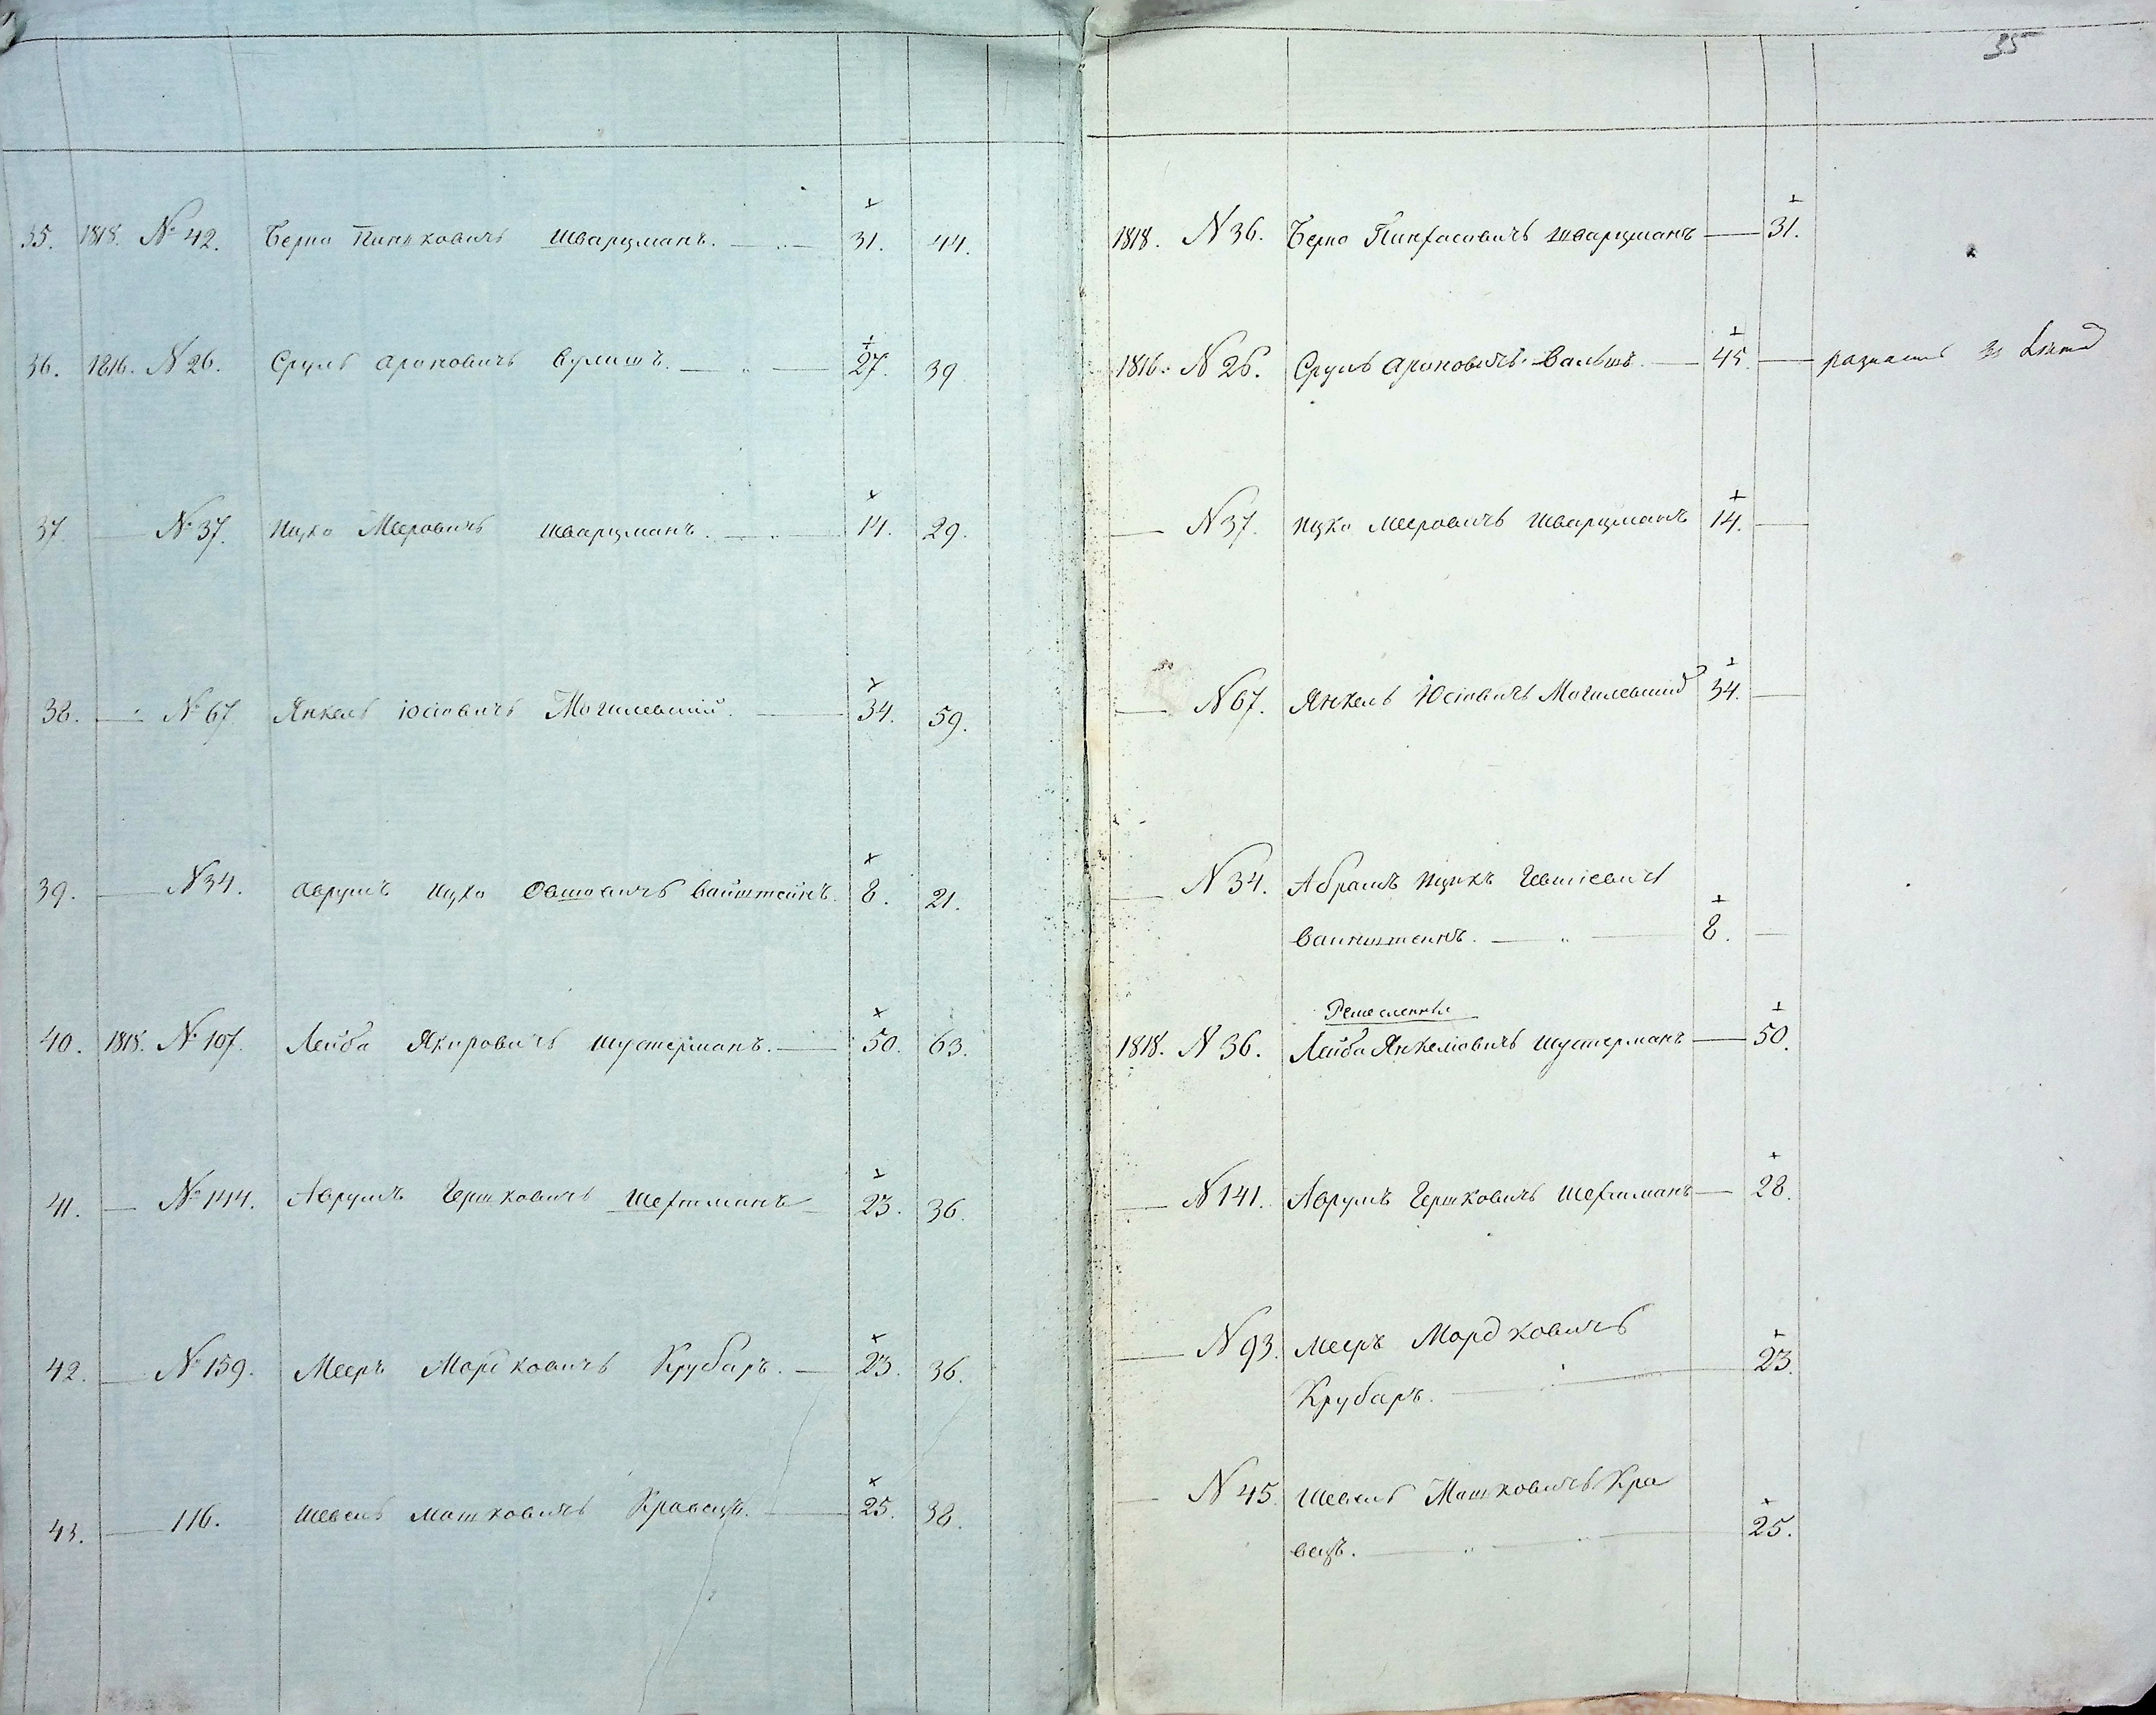 35
35. 1818. № 42. Берко Пиньковичъ Шварцманъ. 31. 44.
36. 1816. N 26. Сруль Ароновичъ Вулишъ. 27. 39
37 № 37. Ицко Мееровичъ Шварцманъ. 14. 29.
38. № 67 Янкель Іосіовичъ Могилевскій. 34. 59.
39. N 34. Аврумъ Ицко Овшовичъ Вайнштейнъ. 8. 21.
40. 1818. № 107. Лейба Якировичъ Шустерманъ. 50. 63.
41. № 144. Аврумъ Гершковичъ Шехтманъ 23. 36.
42. № 159. Мееръ Мордковичъ Крубаръ. 23. 36.
43. 116. Шевель Машковичъ Кравецъ. 25. 38.
1818. N 36. Берко Пинхасовичъ Шварцманъ 31.
1816. N 26. Сруль Ароновичъ Вальшъ 45. разность въ
N 37. Ицко Мееровичъ Шварцманъ 14.
N 67. Янкель Іосіовичъ Могилевскій 34.
N 34. Абрамъ Ицикъ Гевшіевичъ
Вайнштейнъ. 8.
1818. N 36. Лейба Янкеліовичъ Шустерманъ 50.
N 141. Аврумъ Гершковичъ Шехтманъ 28.
N 93. Мееръ Мордковичъ
Крубаръ. 23.
N 45. Шевель Машковичъ Кра
вецъ. 25.